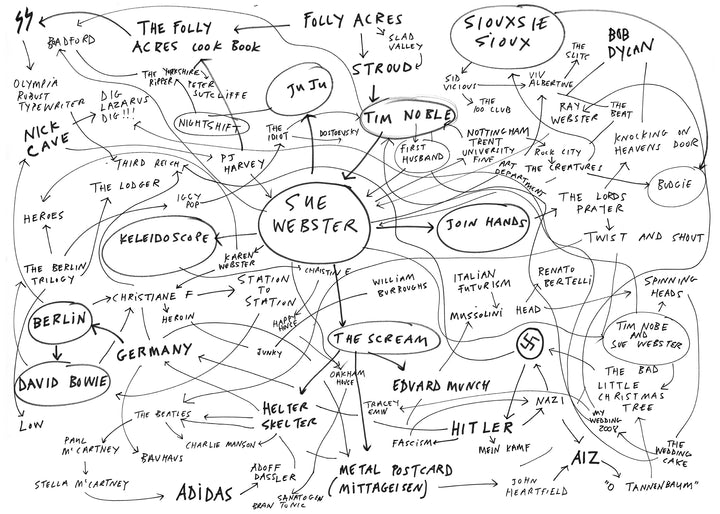 THE FOLLY
ACRES COOK BOOK
FOLLY ACRES
SLAD
VALLEY
STROUD
SIOUXSIE
SIOUX
BOB
DYLAN
THE
SLITS
BADFORD
THE YORKSHIRE
RIPPER
PETER
SUTCLIFFE
JUJU
SID
VICIOUS
VIV
ALBERTINE
OLYMPIA
ROBUST
TYPEWRITER
DIG
LAZARUS
DIG!!!
THE
100 CLUB
RAY
WEBSTER
THE
BEAT
NICK
CAVE
NIGHTSHIFT
THE
IDIOT
DOSTOEVSKY
TIM NOBLE
FIRST
HUSBAND
NOTTINGHAM
TRENT
UNIVERSITY
FINE
ART
DEPARTMENT
ROCK CITY
THE CREATURES
KNOCKING ON
HEAVENS DOOR
THIRD REICH
PJ
HARVEY
THE LODGER
IGGY
POP
BUDGIE
HEROES
SUE
WEBSTER
JOIN HANDS
THE LORDS
PRAYER
KELEIDOSCOPE
TWIST AND SHOUT
KAREN
WEBSTER
THE BERLIN
TRILOGY
CHRISTIANE F
STATION
TO
STATION
CHRISTINE
WILLIAM
BURROUGHS
ITALIAN
FUTURISM
RENATO
BERTELLI
SPINNING
HEADS
HEROIN
HAPPY
HOUSE
MUSSOLINI
HEAD
BERLIN
TIM NOBE
AND
SUE WEBSTER
GERMANY
JUNKY
THE SCREAM
DAVID BOWIE
OAKHAM
HOUSE
EDVARD MUNCH
THE BAD
LITTLE
CHRISTMAS
TREE
LOW
THE BEATLES
HELTER
SKELTER
TRACEY
EMIN
NAZI
MY
WEDDING
2008
HITLER
FASCISM
MEIN KAMF
PAUL
McCARTNEY
CHARLIE MANSON
BAUHAUS
AIZ
THE
WEDDING
CAKE
STELLA McCARTNEY
ADIDAS
ADOFF
DASSLER
SANATOGEN
BRAN TONIC
METAL POSTCARD
(MITTAGEISEN)
JOHN
HEARTFIELD
"O TANNENBAUM"